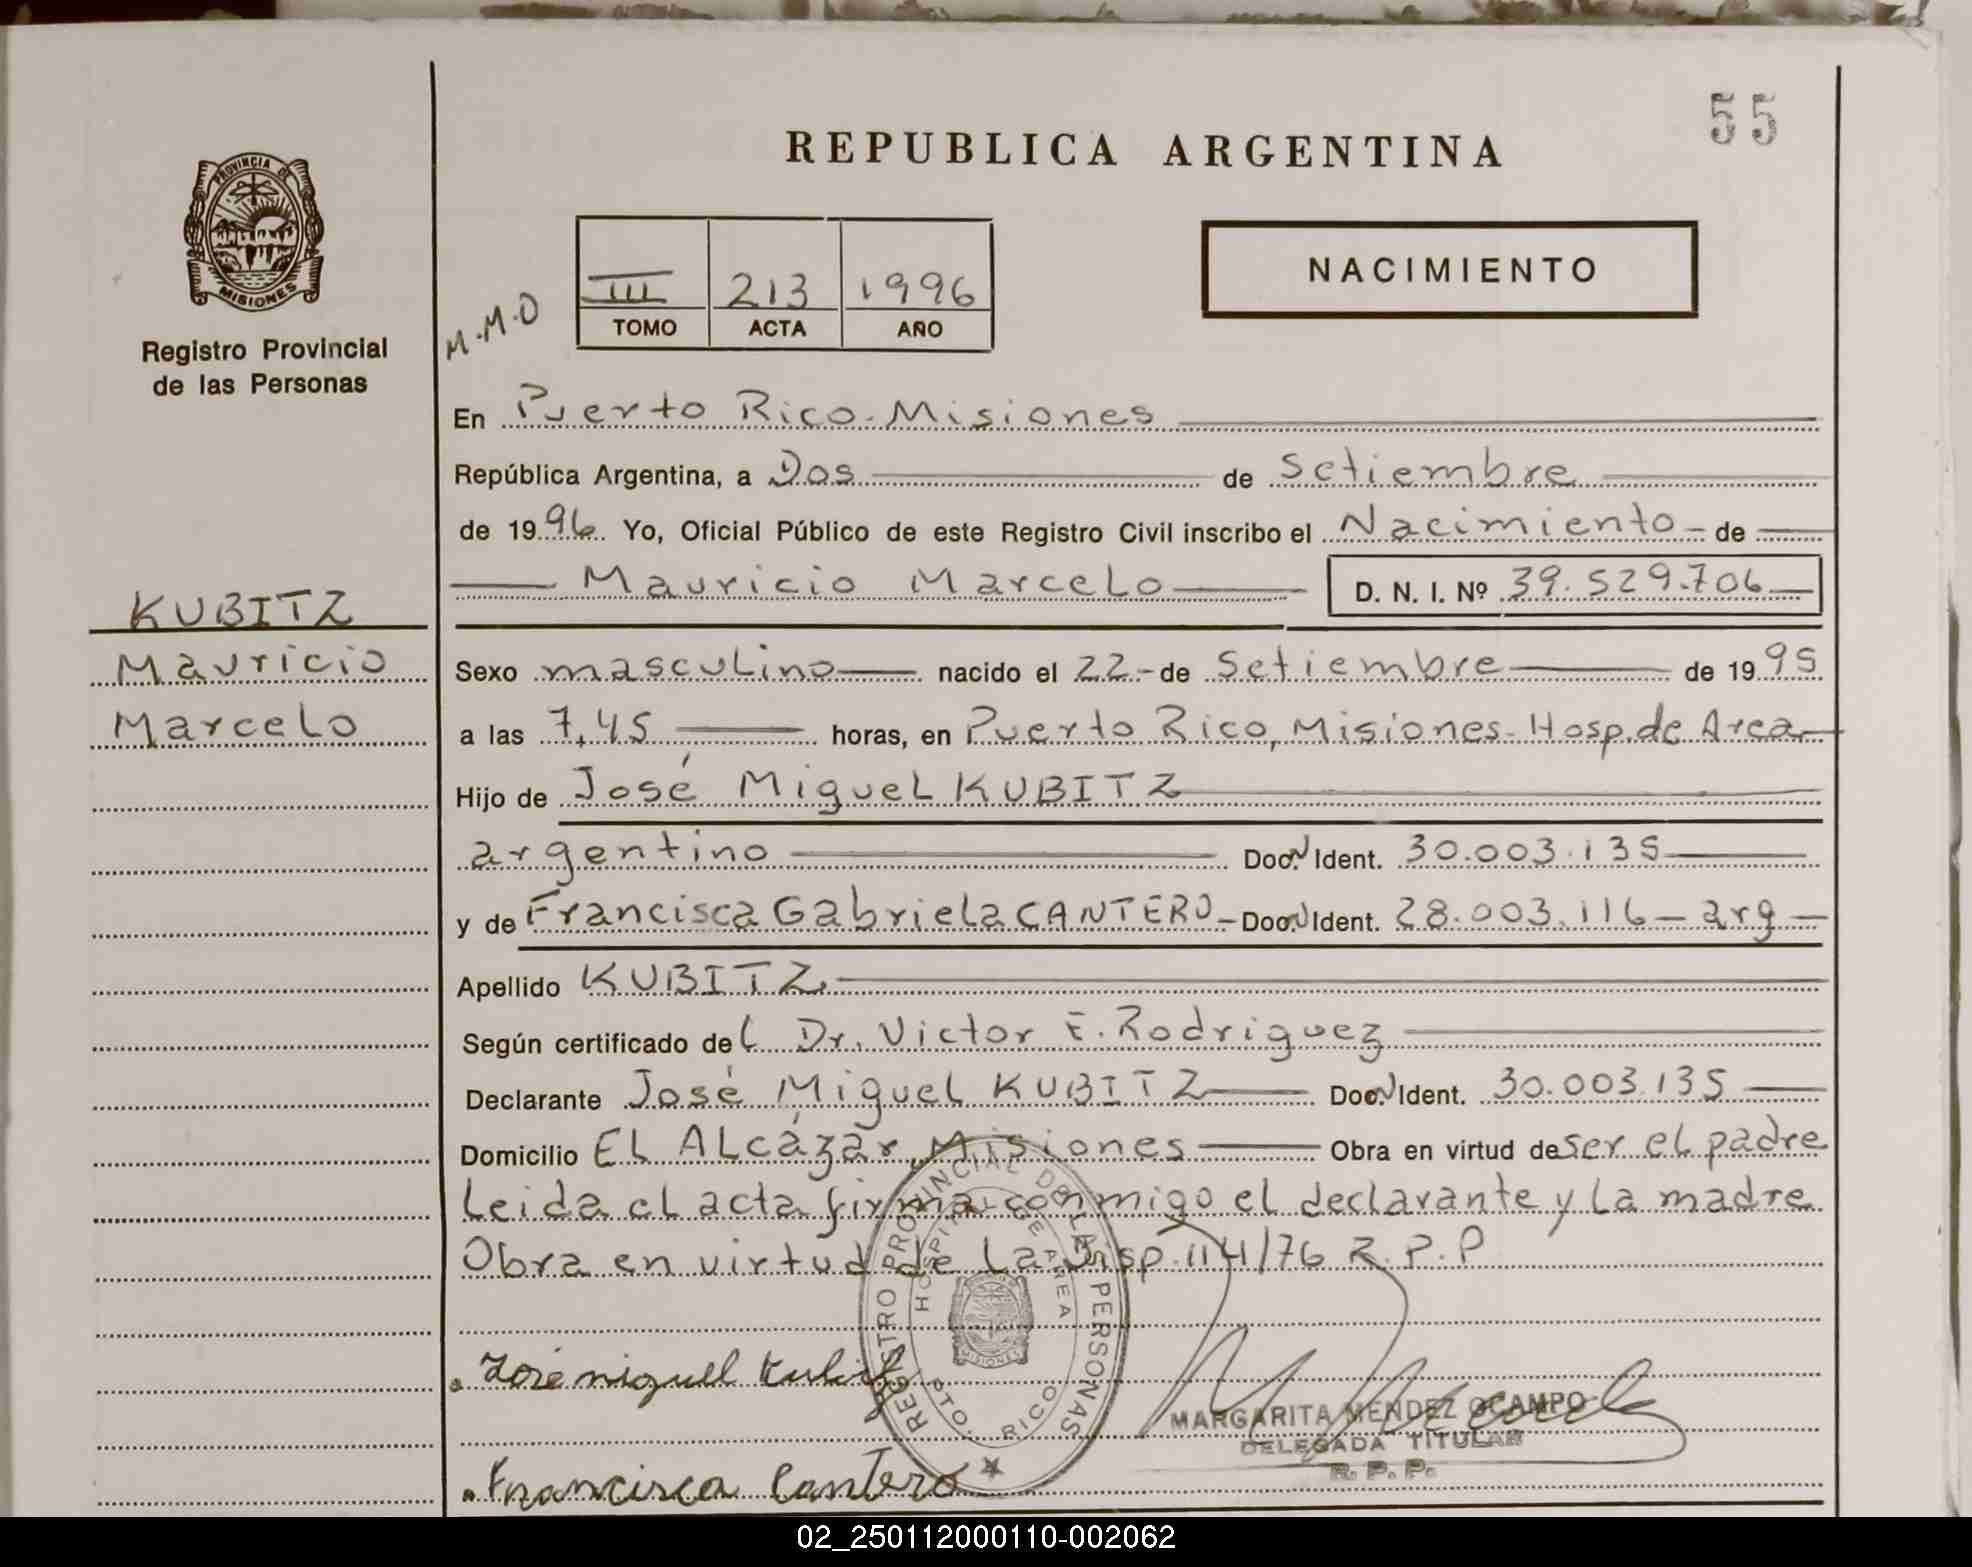 55
REPUBLICA ARGENTINA
PROVINCIA DE
MISIONES
Registro Provincial
de las Personas
M.M.O
III 213 1996
TOMO ACTA AÑO
NACIMIENTO
En Puerto Rico-Misiones
República Argentina, a Dos de Setiembre
de 1996 Yo, Oficial Público de este Registro Civil inscribo el Nacimiento - de
Mauricio Marcelo D. N. I. Nº 39.529.706
KUBITZ
Mauricio
Marcelo
Sexo masculino nacido el 22 - de Setiembre de 1995
a las 7,45 horas, en Puerto Rico, Misiones - Hosp. de Area
Hijo de José Miguel KUBITZ
argentino Doc. N Ident. 30.003.135
y de Francisca Gabriela CANTERO - Doc. N Ident. 28.003.116 - arg
Apellido KUBITZ
Según certificado del Dr. Victor E. Rodriguez
Declarante José Miguel KUBITZ Doc. N Ident. 30.003.135
Domicilio EL ALcázar, Misiones Obra en virtud de ser el padre
Leida el acta firma conmigo el declarante y La madre
Obra en virtud de La Disp. 114/76 R.P.P
REGISTRO PROVINCIAL DE LAS PERSONAS
HOSPITAL DE AREA
MISIONES
PTO. RICO
José miguel Kubitz
MARGARITA MENDEZ OCAMPO
DELEGADA TITULAR
R. P. P.
Francisca Cantero
02_250112000110-002062